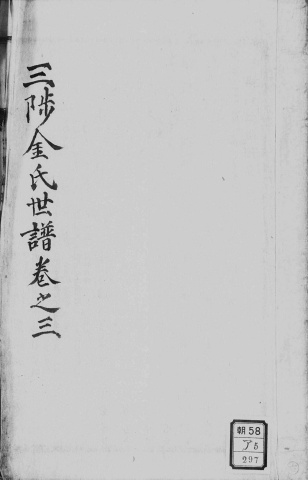 三陟金氏世譜卷之三
朝58
ア5
297